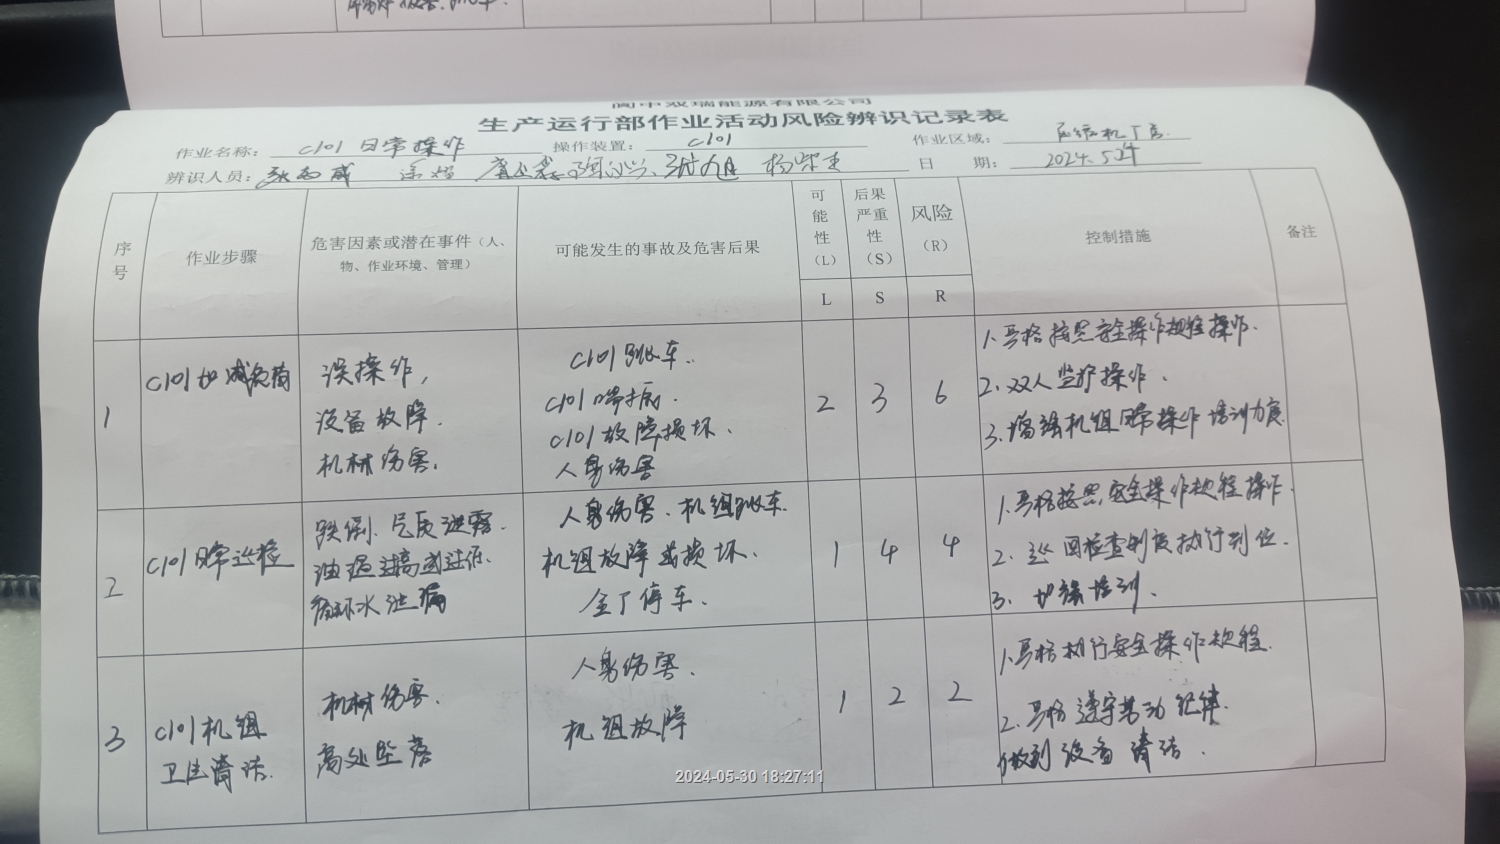 阆中双瑞能源有限公司
生产运行部作业活动风险辨识记录表
作业名称: C101日常操作 操作装置: C101 作业区域: 压缩机厂房
辨识人员: 日 期: 2024.5.24
序号 作业步骤 危害因素或潜在事件(人、物、作业环境、管理) 可能发生的事故及危害后果 可能性(L) 后果严重性(S) 风险(R) 控制措施 备注
L S R
1 C101加减负荷
误操作,
设备故障.
机材伤害.
C101跳车.
C101喘振.
C101故障损坏.
人身伤害
2 3 6
1.严格按照安全操作规程操作.
2.双人监护操作.
3.增强机组日常操作培训力度.
2 C101日常巡检
跌倒.气质泄露.
油温过高或过低.
循环水泄漏
人身伤害.机组跳车.
机组故障或损坏.
全厂停车.
1 4 4
1.严格按照安全操作规程操作.
2.巡回检查制度执行到位.
3.加强培训.
3 C101机组
卫生清洁.
机材伤害.
高处坠落
人身伤害.
机组故障
1 2 2
1.严格执行安全操作规程.
2.严格遵守劳动纪律.
做到设备清洁.
2024-05-30 18:27:11